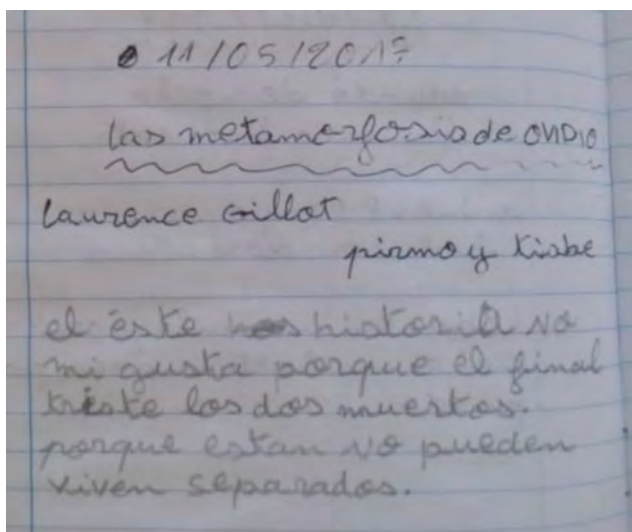 11/05/2017
las metamorfosis de OVIDIO
Laurence Gillot
pirmo y tiabe
el este historia no
mi gusta porque el final
triste los dos muertos.
porque estan no pueden
viven separados.